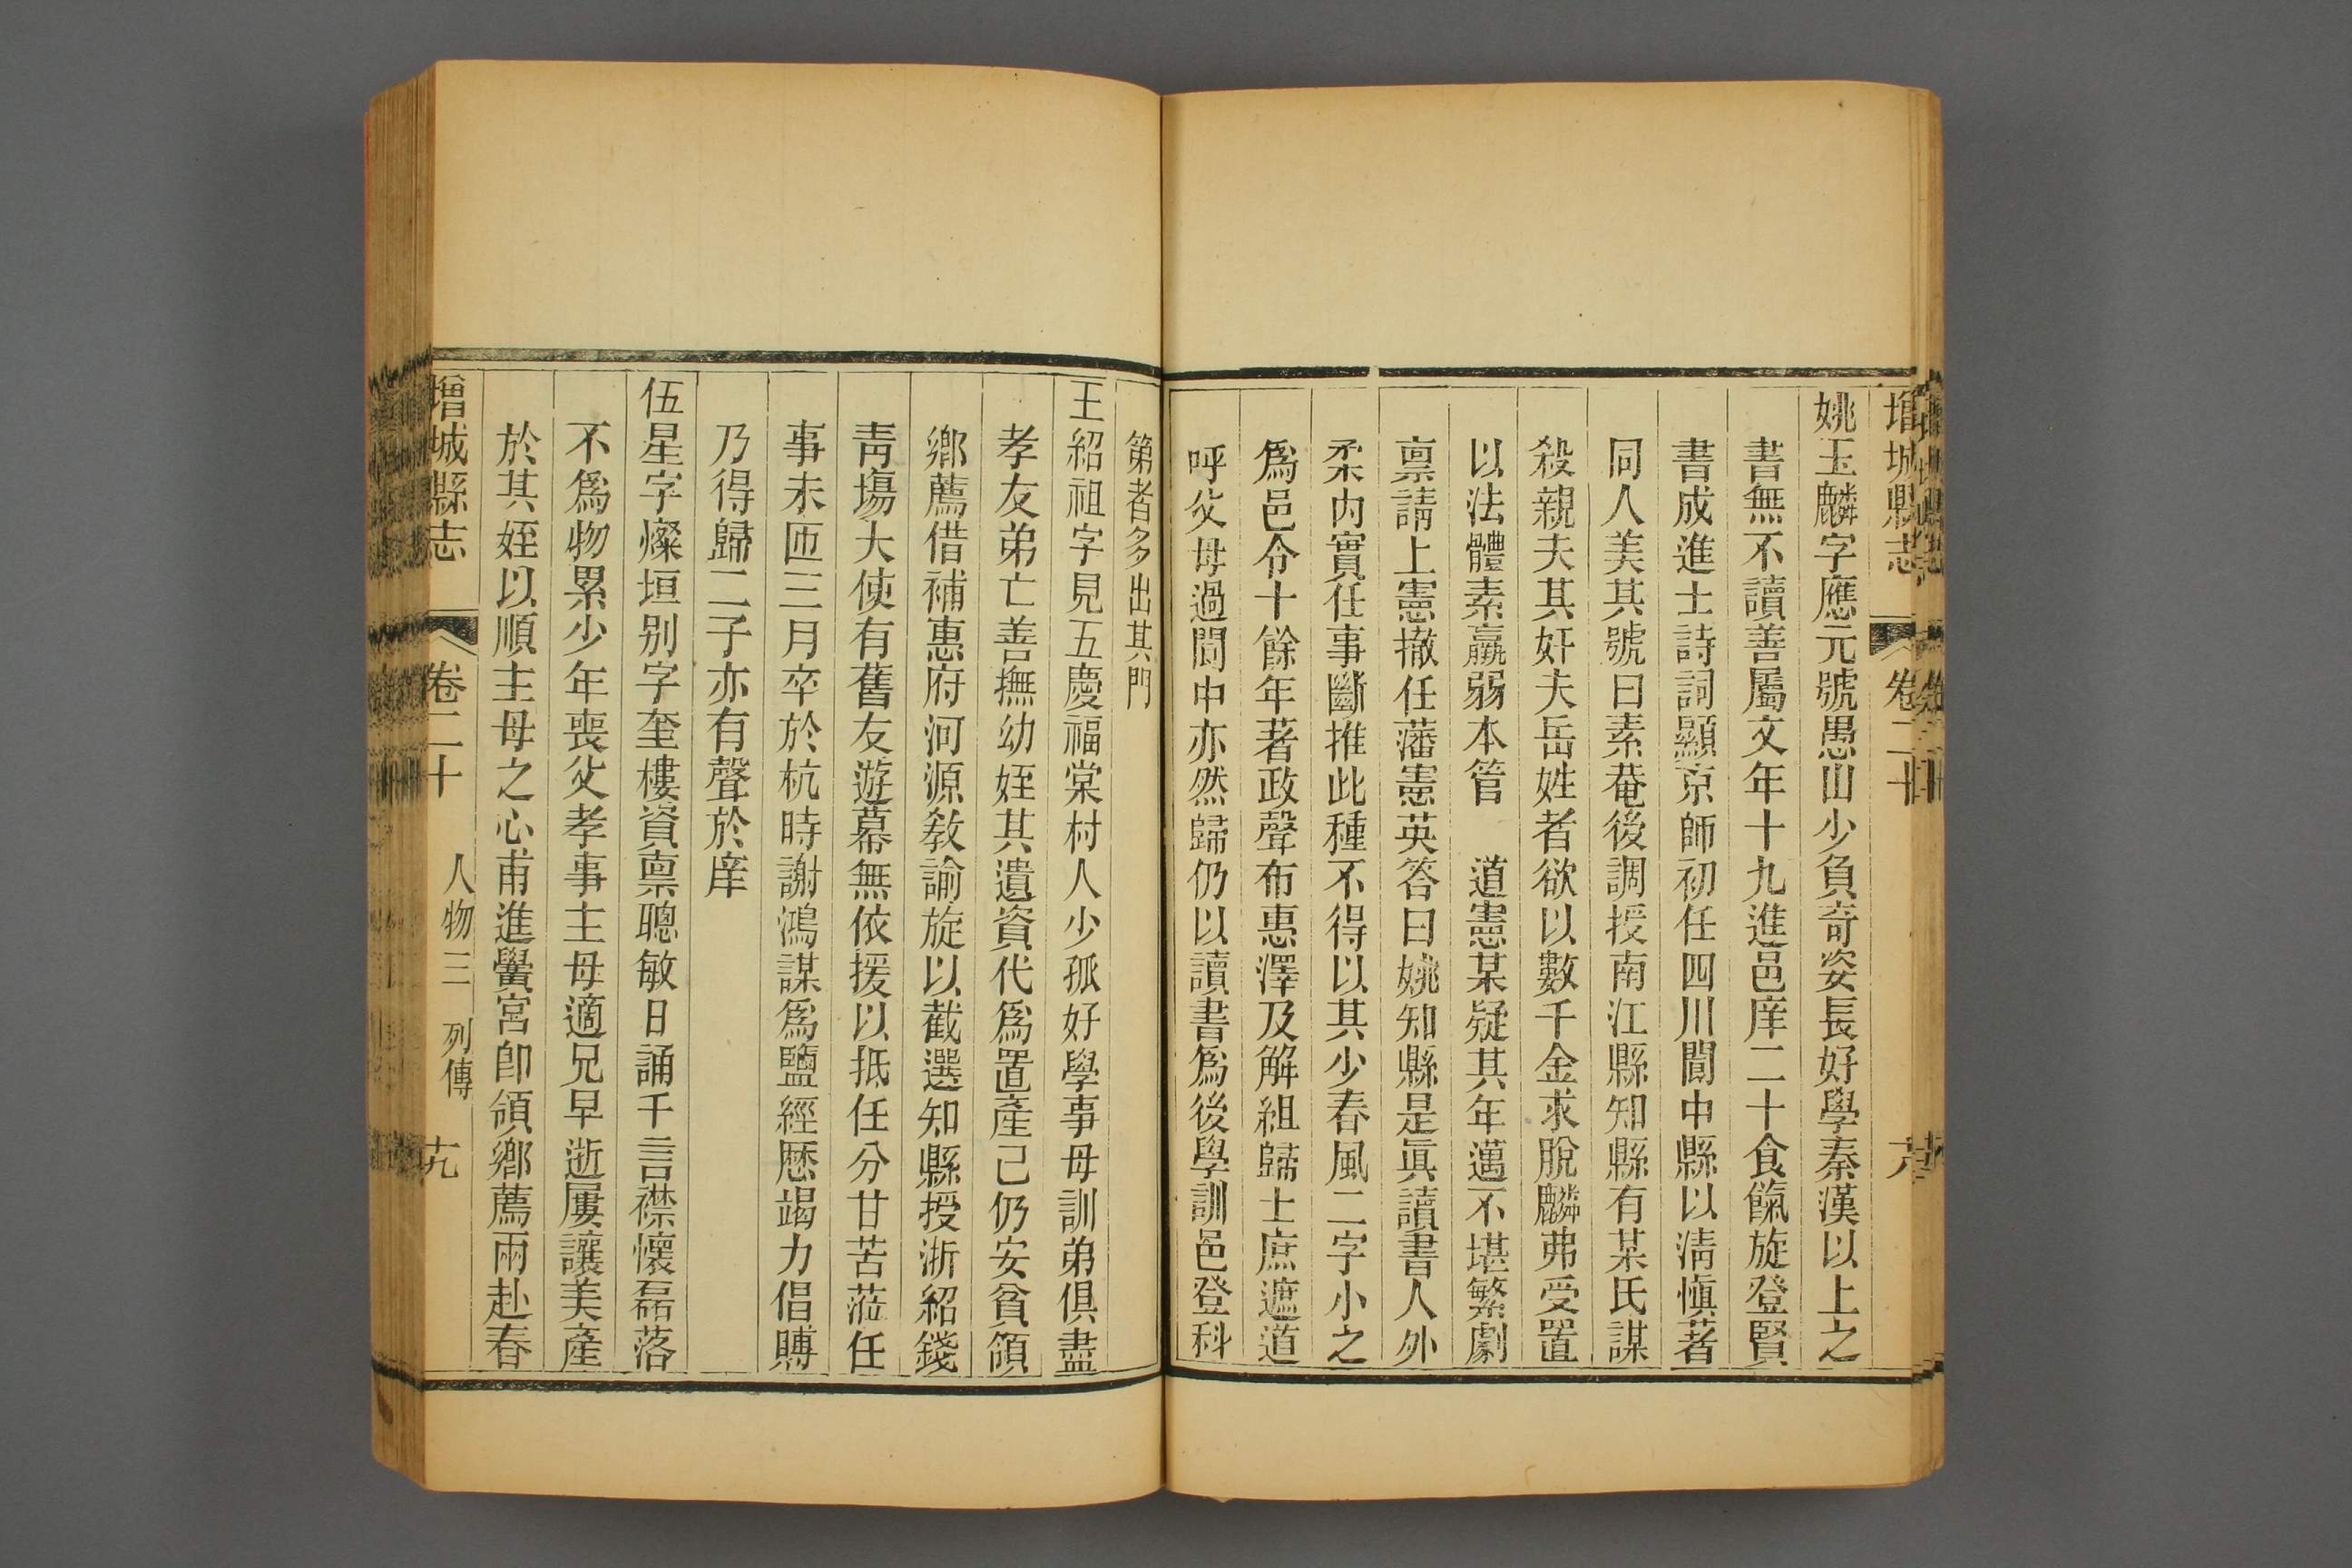 增城縣志 卷二十 十八
姚玉麟字應元號愚山少負奇姿長好學秦漢以上之
書無不讀善屬文年十九進邑庠二十食餼旋登賢
書成進士詩詞顯京師初任四川閬中縣以淸愼著
同人美其號曰素菴後調授南江縣知縣有某氏謀
殺親夫其奸夫岳姓者欲以數千金求脫麟弗受置
以法體素羸弱本管 道憲某疑其年邁不堪繁劇
禀請上憲撤任藩憲英答曰姚知縣是眞讀書人外
柔內實任事斷推此種不得以其少春風二字小之
爲邑令十餘年著政聲布惠澤及解組歸士庶遮道
呼父母過閬中亦然歸仍以讀書爲後學訓邑登科
第者多出其門
王紹祖字見五慶福棠村人少孤好學事母訓弟俱盡
孝友弟亡善撫幼姪其遺資代爲置產己仍安貧領
鄉薦借補惠府河源敎諭旋以截選知縣授浙紹錢
靑塲大使有舊友遊幕無依援以抵任分甘苦蒞任
事未匝三月卒於杭時謝鴻謀爲鹽經歷竭力倡賻
乃得歸二子亦有聲於庠
伍星字燦垣别字奎樓資禀聰敏日誦千言襟懷磊落
不爲物累少年喪父孝事主母適兄早逝屢讓美產
於其姪以順主母之心甫進黌宮卽領鄉薦兩赴春
增城縣志 卷二十 人物三 列傳 十九